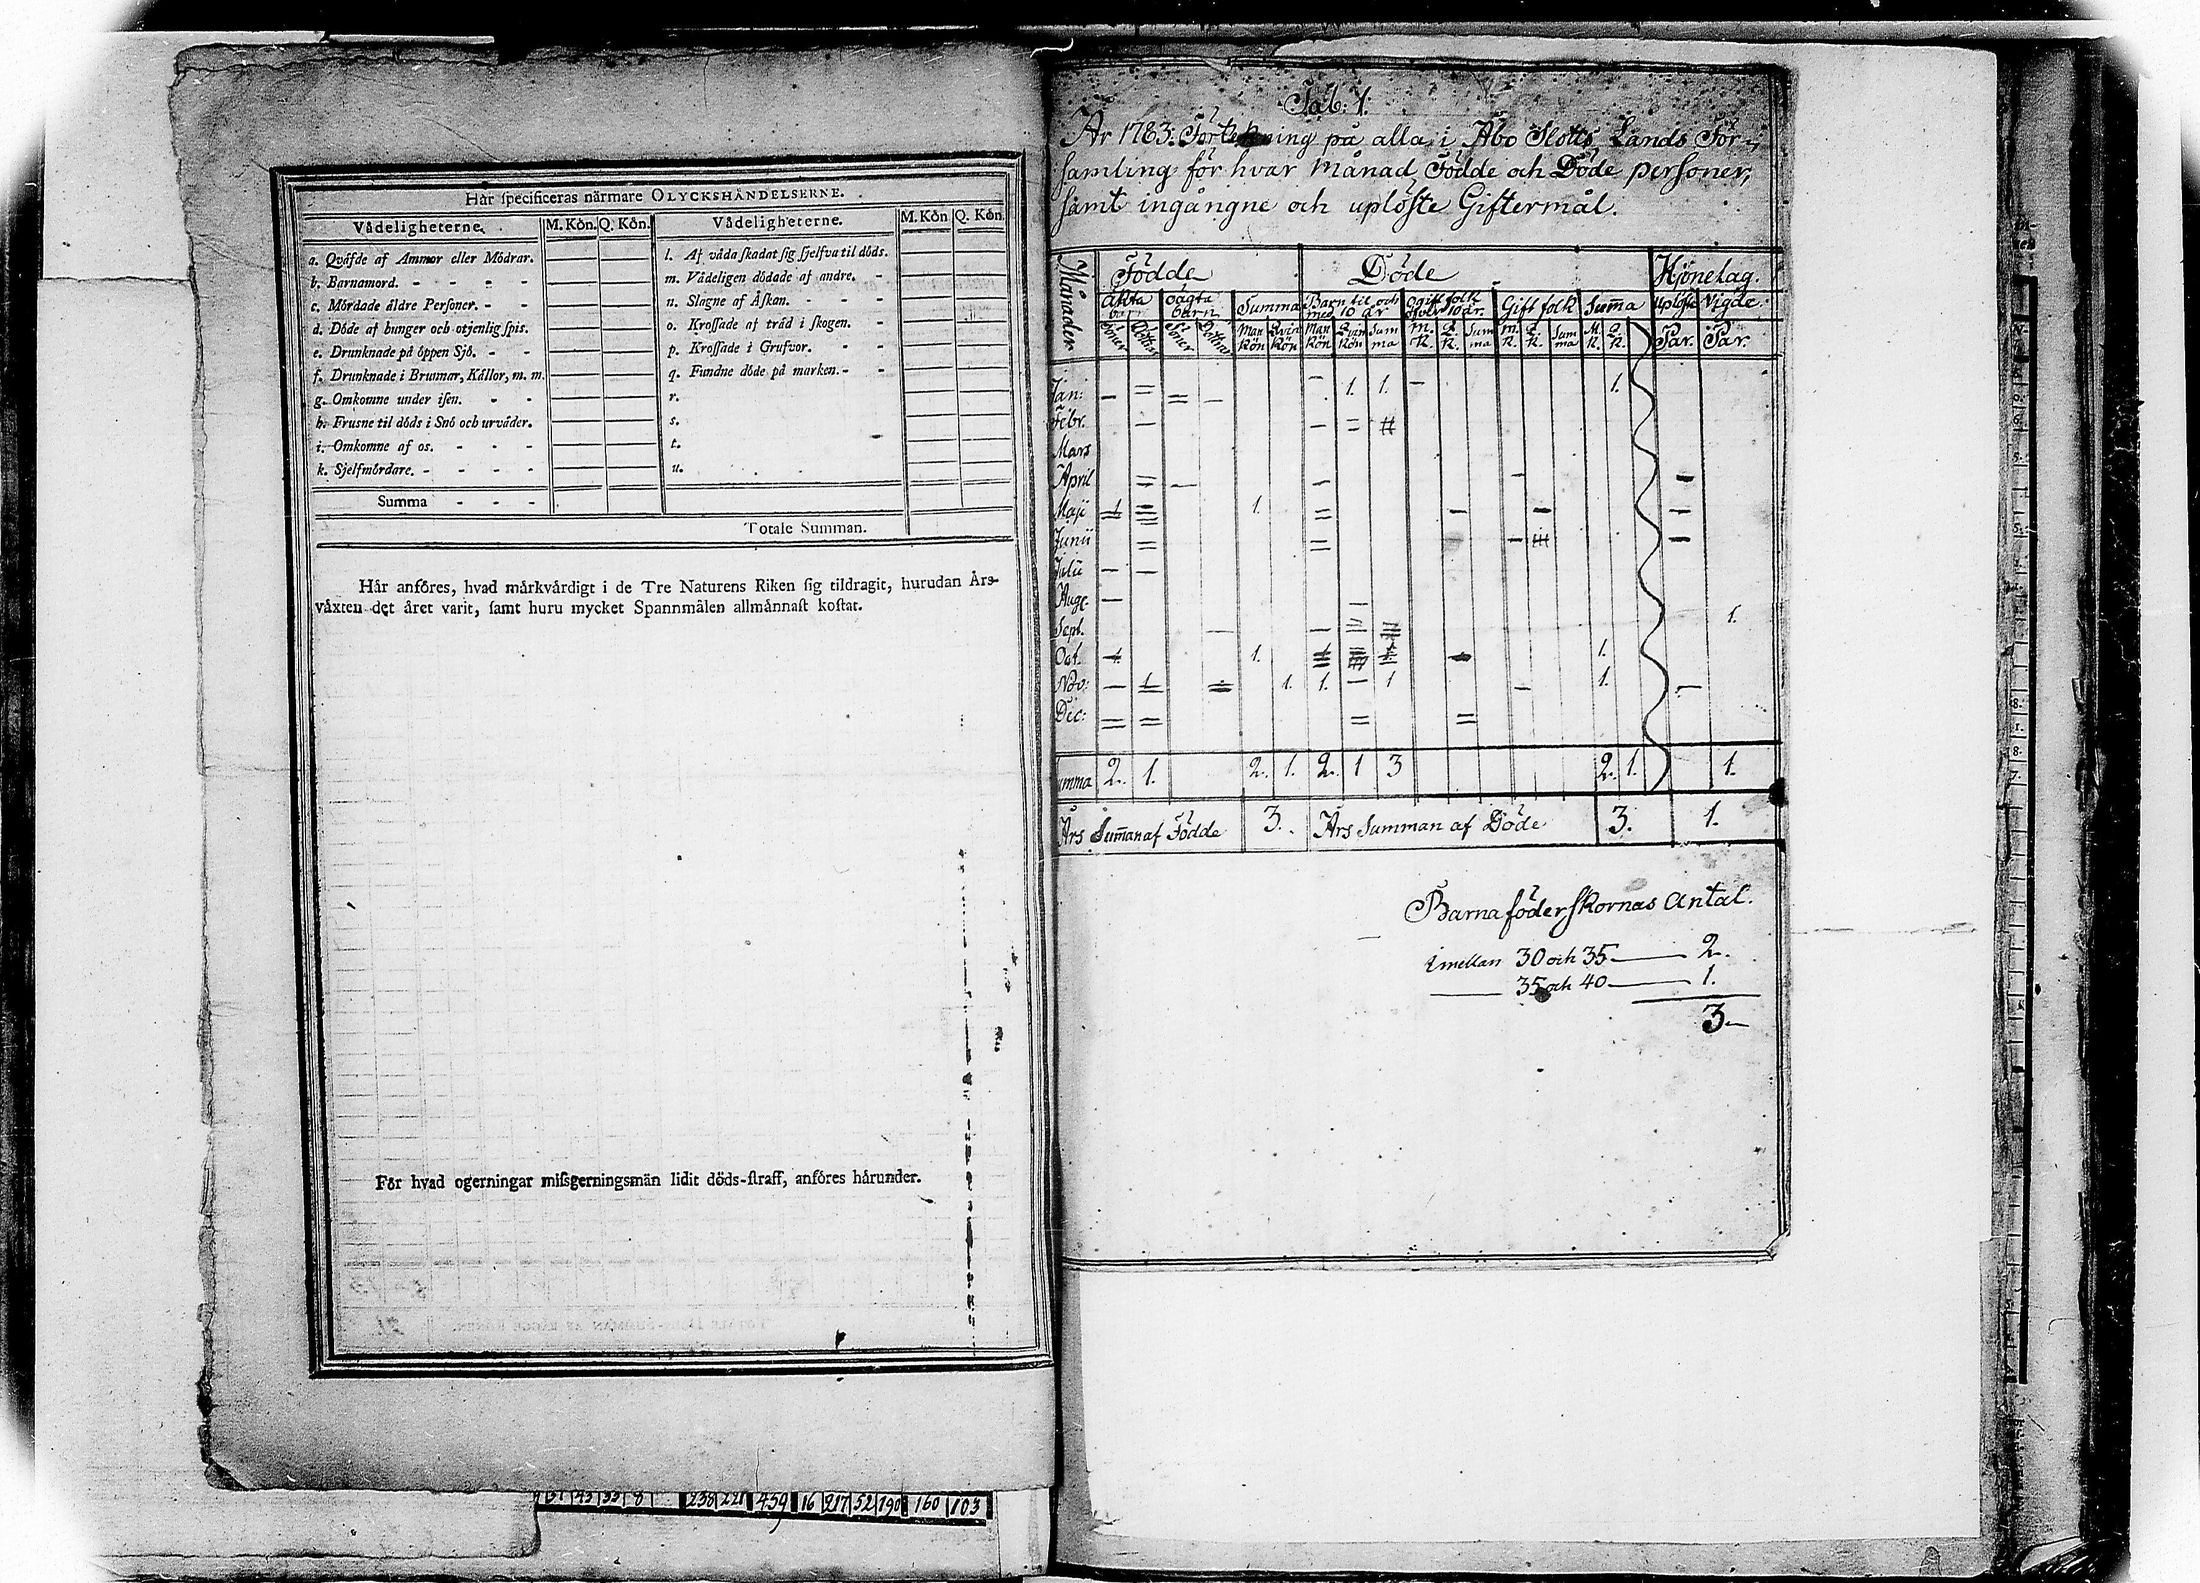 Här specificeras närmare OLYCKSHÄNDELSERNE.
Vådeligheterne. M. Kön. Q. Kön. Vådeligheterne. M. Kön Q. Kön.
a. Qväfde af Ammor eller Mödrar.
b. Barnamord. - - - - -
c. Mördade äldre Personer. - -
d. Döde af hunger och otjenlig spis.
e. Drunknade på öppen Sjö. - -
f. Drunknade i Brunnar, Källor, m. m.
g. Omkomne under isen. - -
h. Frusne til döds i Snö och urväder.
i. Omkomne af os. - - -
k. Sjelfmördare. - - - -
Summa - - -
l. Af våda skadat sig sjelfva til döds.
m. Vådeligen dödade af andre. -
n. Slagne af Åskan. - - - -
o. Krossade af träd i skogen. -
p. Krossade i Grufvor. - - -
q. Fundne döde på marken. - -
r.
s.
t.
u.
Totale Summan.
Här anföres, hvad märkvärdigt i de Tre Naturens Riken sig tildragit, hurudan Års-
växten det året varit, samt huru mycket Spannmålen allmännast kostat.
För hvad ogerningar missgerningsmän lidit döds-straff, anföres härunder.
31 43 33 8 238 221 459 16 217 52 190 160 103
Tab: 1.
År 1783. Förtekning på alla, i Åbo Slotts Lands För-
samling för hvar Månad Födde och Döde personer,
samt ingångne och uplöste Giftermål.
Månader Födde Döde Hjonelag.
äkta barn oägta barn Summa Barn til och med 10 år ogift folk öfver 10 år. Gift folk Summa uplöste Vigde.
Söner Döttrar Söner Döttrar Man Kön Qvin Kön Man Kön Qvin Kön Sum ma M. K. Q. K. Sum ma M. K. Q. K. Sum ma M. K. Q. K. Par. Par.
Jan: 1. 1. 1.
Febr.
Mars
April
Maji 1 1.
Junii
Julii
Aug:
Sept. 1.
Oct. 1. 1.
Nov: 1 1. 1. 1 1.
Dec:
Summa 2. 1. 2. 1. 2. 1 3 2. 1. 1.
Års Summan af Födde 3. Års Summan af Döde 3. 1.
Barnaföderskornas Antal.
imellan 30 och 35 — 2.
— 35 och 40 — 1.
3